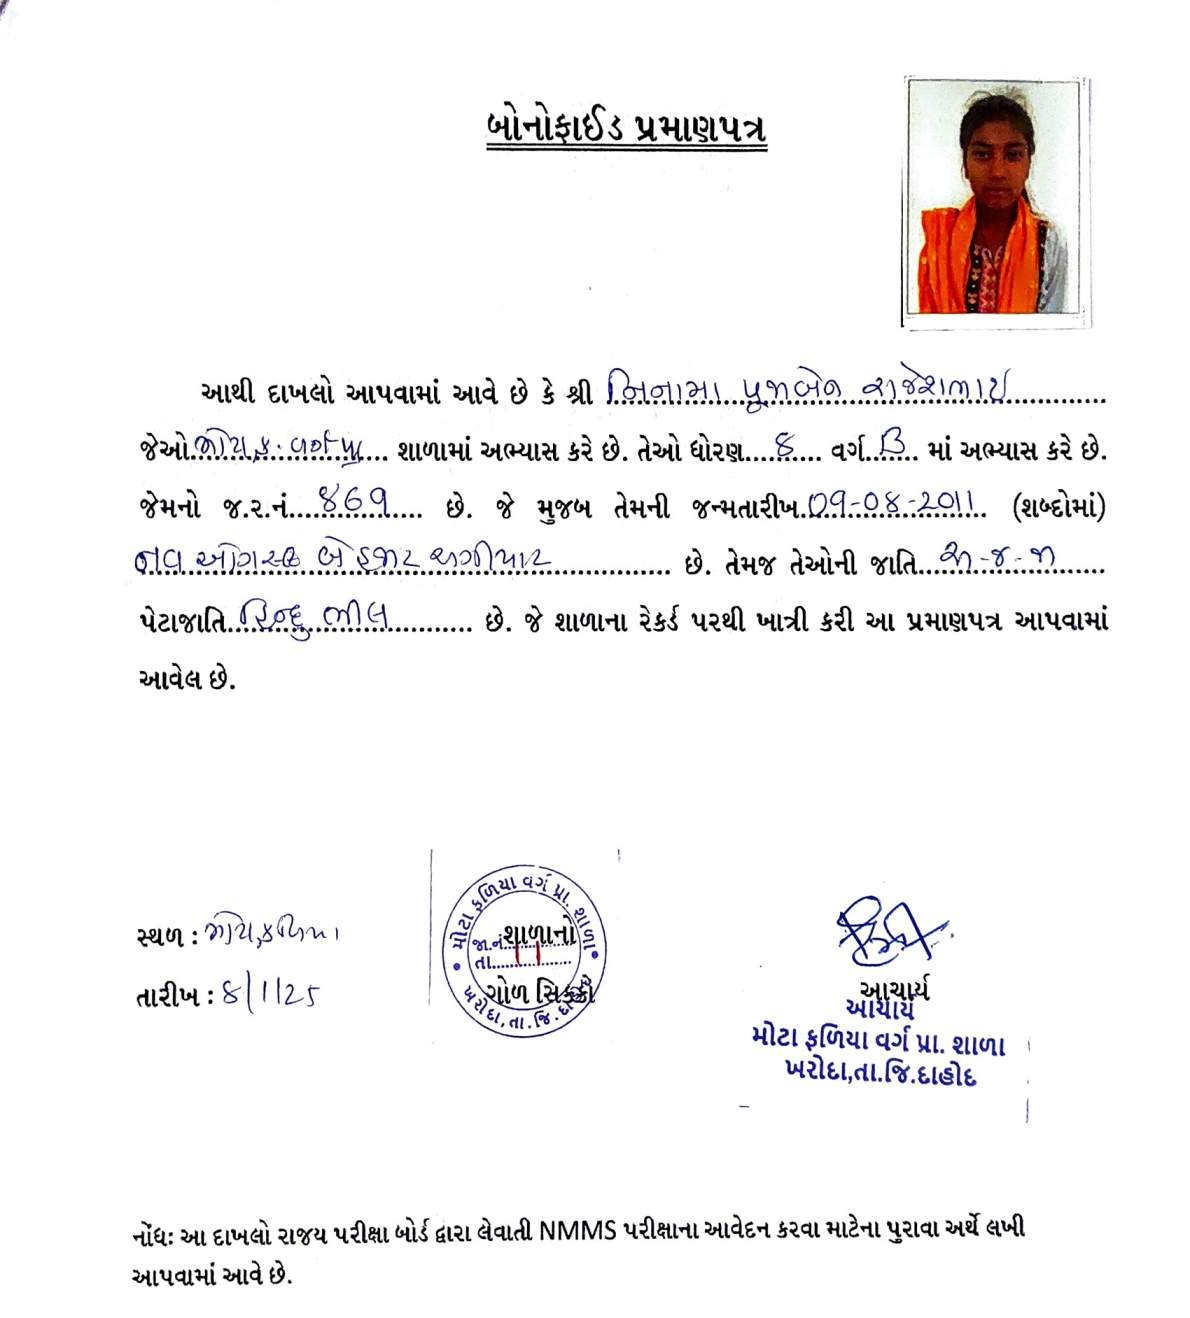 બોનોફાઈડ પ્રમાણપત્ર
આથી દાખલો આપવામાં આવે છે કે શ્રી બિનામા પુજાબેન રાજેશભાઈ
જેઓ મોટા.ફ.વર્ગ.પ્રા શાળામાં અભ્યાસ કરે છે. તેઓ ધોરણ 8 વર્ગ B માં અભ્યાસ કરે છે.
જેમનો જ.ર.નં. ૪૬૧ છે. જે મુજબ તેમની જન્મતારીખ 09-08-2011 (શબ્દોમાં)
નવ ઓગસ્ટ બે હજાર અગીયાર છે. તેમજ તેઓની જાતિ અ-જ-જા
પેટાજાતિ હિન્દુ ભીલ છે. જે શાળાના રેકર્ડ પરથી ખાત્રી કરી આ પ્રમાણપત્ર આપવામાં
આવેલ છે.
સ્થળ : મોટા ફળિયા
તારીખ : 8/1/25
મોટા ફળિયા વર્ગ પ્રા. શાળા
જા.નં.
તા.
ખરોદા, તા.જિ.દાહોદ
શાળાનો
ગોળ સિક્કો
આચાર્ય
આચાર્ય
મોટા ફળિયા વર્ગ પ્રા. શાળા
ખરોદા,તા.જિ.દાહોદ
નોંધઃ આ દાખલો રાજય પરીક્ષા બોર્ડ દ્વારા લેવાતી NMMS પરીક્ષાના આવેદન કરવા માટેના પુરાવા અર્થે લખી
આપવામાં આવે છે.